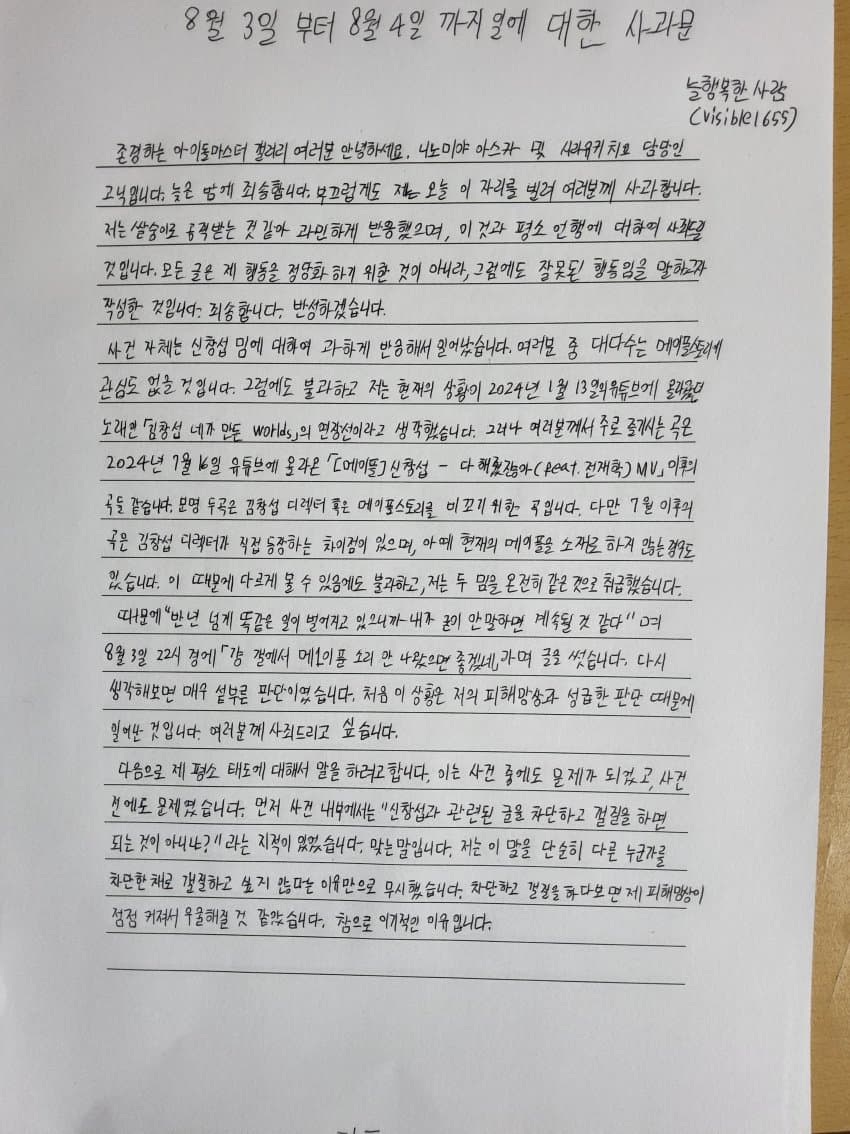 8월 3일 부터 8월 4일 까지 일에 대한 사과문
늘행복한 사람
(visible1655)
존경하는 아이돌마스터 갤러리 여러분 안녕하세요. 니노미야 아스카 및 시라유키 치요 담당인
고닉입니다. 늦은 밤에 죄송합니다. 부끄럽게도 저는 오늘 이 자리를 빌려 여러분께 사과합니다.
저는 쌀숭이로 공격받는 것 같아 과민하게 반응했으며, 이것과 평소 언행에 대하여 사죄드릴
것입니다. 모든 글은 제 행동을 정당화 하기 위한 것이 아니라, 그럼에도 잘못된 행동임을 말하고자
작성한 것입니다. 죄송합니다. 반성하겠습니다.
사건 자체는 신창섭 밈에 대하여 과하게 반응해서 일어났습니다. 여러분 중 대다수는 메이플스토리에
관심도 없을 것입니다. 그럼에도 불과하고 저는 현재의 상황이 2024년 1월 13일의 유튜브에 올라왔던
노래인 「김창섭 네가 만든 worlds」의 연장선이라고 생각했습니다. 그러나 여러분께서 주로 즐기시는 곡은
2024년 7월 16일 유튜브에 올라온 「[메이플] 신창섭 - 다 해줬잖아 (feat. 전재학) MV」 이후의
곡들 같습니다. 분명 두곡은 김창섭 디렉터 혹은 메이플스토리를 비꼬기 위한 곡입니다. 다만 7월 이후의
곡은 김창섭 디렉터가 직접 등장하는 차이점이 있으며, 아예 현재의 메이플을 소재로 하지 않는 경우도
있습니다. 이 때문에 다르게 볼 수 있음에도 불과하고, 저는 두 밈을 온전히 같은 것으로 취급했습니다.
때문에 "반년 넘게 똑같은 일이 벌어지고 있으니까 내가 굳이 안말하면 계속될 것 같다" 며
8월 3일 22시 경에 「걍 갤에서 메1이플 소리 안 나왔으면 좋겠네」라며 글을 썼습니다. 다시
생각해보면 매우 섣부른 판단이였습니다. 처음 이 상황은 저의 피해망상과 성급한 판단 때문에
일어난 것입니다. 여러분께 사죄드리고 싶습니다.
다음으로 제 평소 태도에 대해서 말을 하려고합니다. 이는 사건 중에도 문제가 되었고, 사건
전에도 문제였습니다. 먼저 사건 내부에서는 "신창섭과 관련된 글을 차단하고 갤질을 하면
되는 것이 아니냐?" 라는 지적이 있었습니다. 맞는 말입니다. 저는 이 말을 단순히 다른 누군가를
차단한 채로 갤질하고 싶지 않다는 이유만으로 무시했습니다. 차단하고 갤질을 하다보면 제 피해망상이
점점 커져서 우울해질 것 같았습니다. 참으로 이기적인 이유입니다.